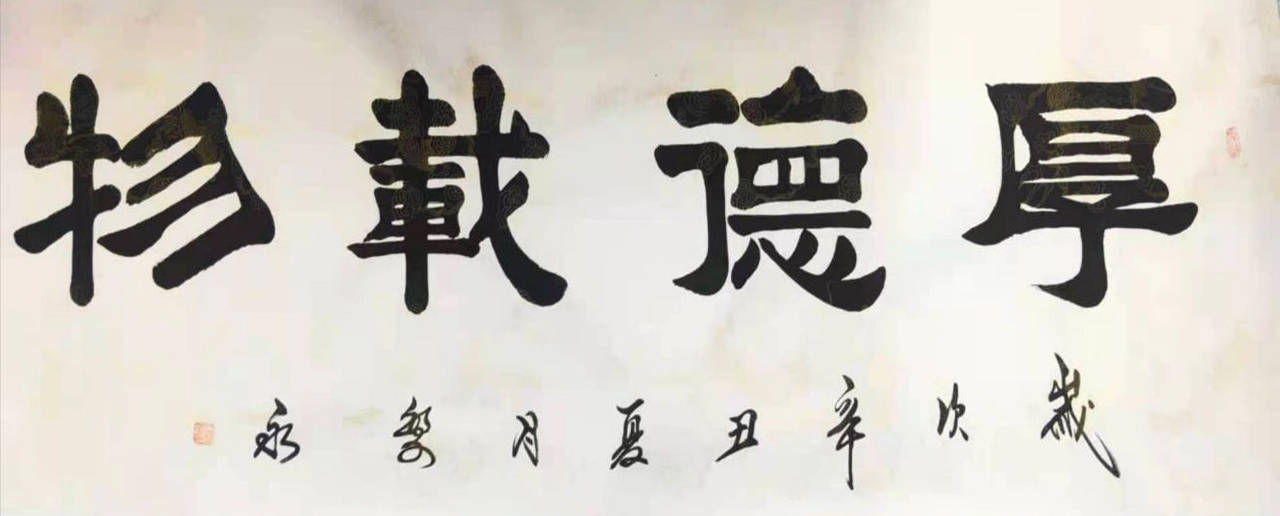 厚德載物
歲次辛丑夏月黎永